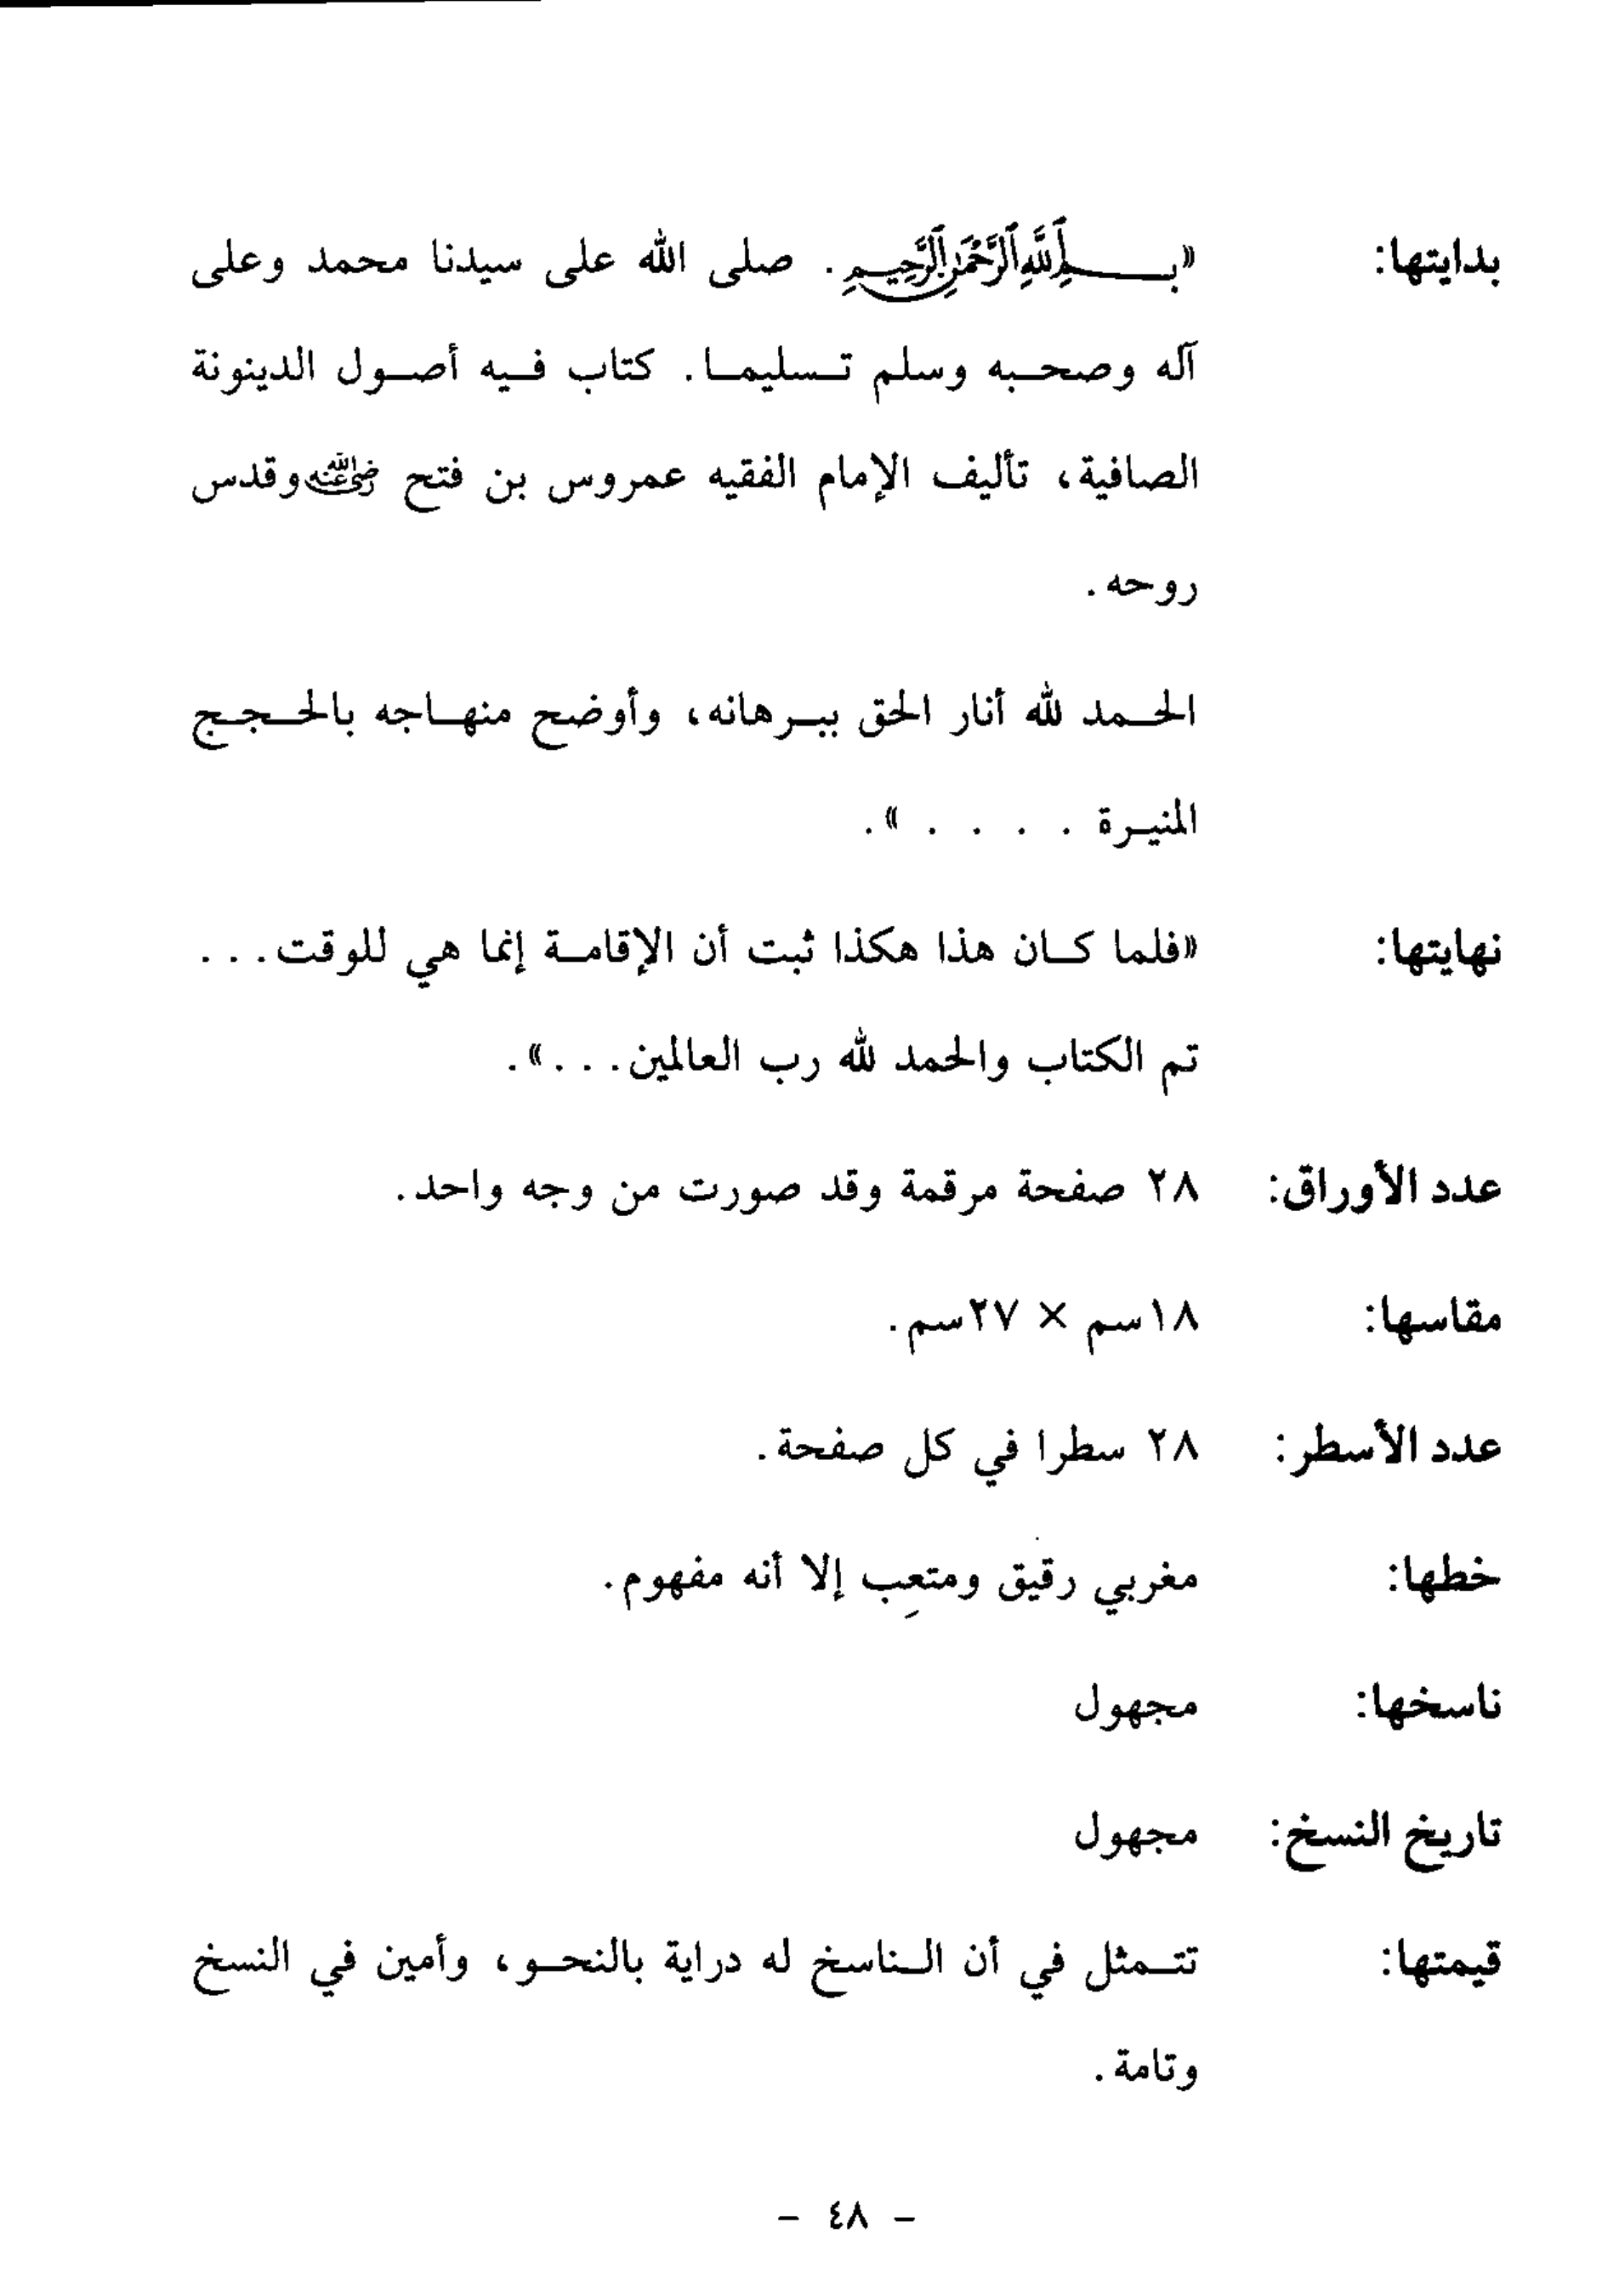 بدايتها: «بسم الله الرحمن الرحيم. صلى الله على سيدنا محمد وعلى
آله وصحبه وسلم تسليما. كتاب فيه أصول الدينونة
الصافية، تأليف الإمام الفقيه عمروس بن فتح رضي الله عنه وقدس
روحه.
الحمد لله أنار الحق ببرهانه، وأوضح منهاجه بالحجج
المنيرة . . . . ».
نهايتها: «فلما كان هذا هكذا ثبت أن الإقامة إنما هي للوقت...
تم الكتاب والحمد لله رب العالمين...».
عدد الأوراق: ٢٨ صفحة مرقمة وقد صورت من وجه واحد.
مقاسها: ١٨سم × ٢٧سم.
عدد الأسطر: ٢٨ سطرا في كل صفحة.
خطها: مغربي رقيق ومتعِب إلا أنه مفهوم.
ناسخها: مجهول
تاريخ النسخ: مجهول
قيمتها: تتمثل في أن الناسخ له دراية بالنحو، وأمين في النسخ
وتامة.
- ٤٨ -